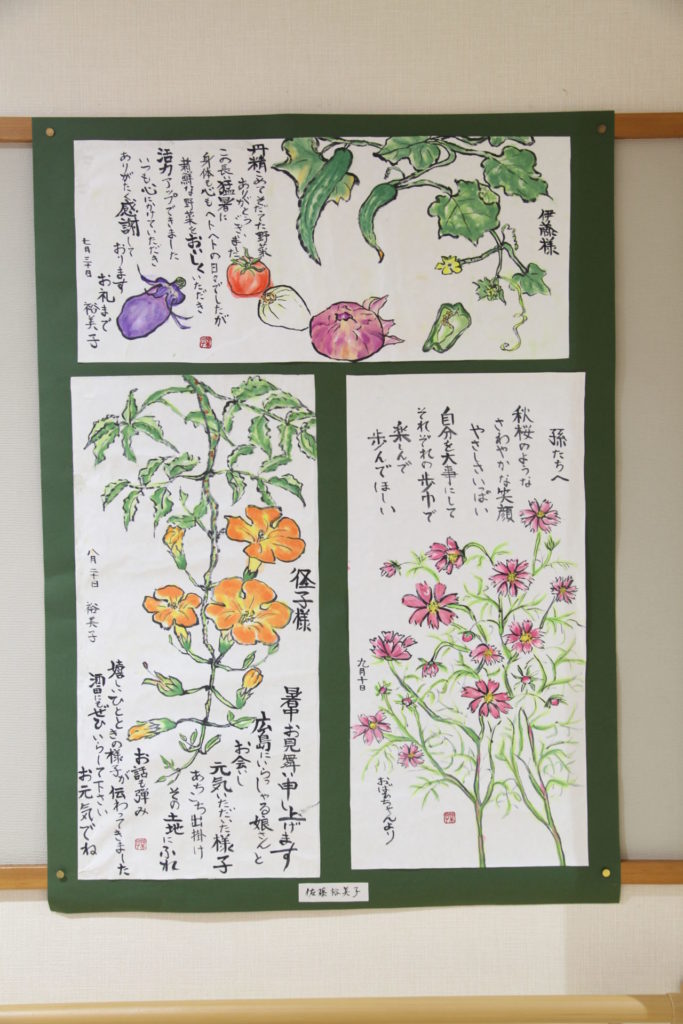 伊藤様
丹精こめてそだてた野菜
ありがとうございました
この長い猛暑に
身体も心もヘトヘトの日々でしたが
新鮮な野菜をおいしくいただき
活力アップできました
いつも心にかけていただき
ありがたく感謝して
おります
お礼まで
七月三十日
裕美子
径子様
暑中お見舞い申し上げます
広島にいらっしゃる娘さんと
お会いし
元気いただいた様子
あちこち出掛け
その土地にふれ
お話も弾み
嬉しいひとときの様子が伝わってきました
酒田にもぜひいらして下さい
お元気でね
八月二十日 裕美子
孫たちへ
秋桜のような
さわやかな笑顔
やさしさいっぱい
自分を大事にして
それぞれの歩巾で
楽しんで
歩んでほしい
九月十日
おばあちゃんより
佐藤裕美子